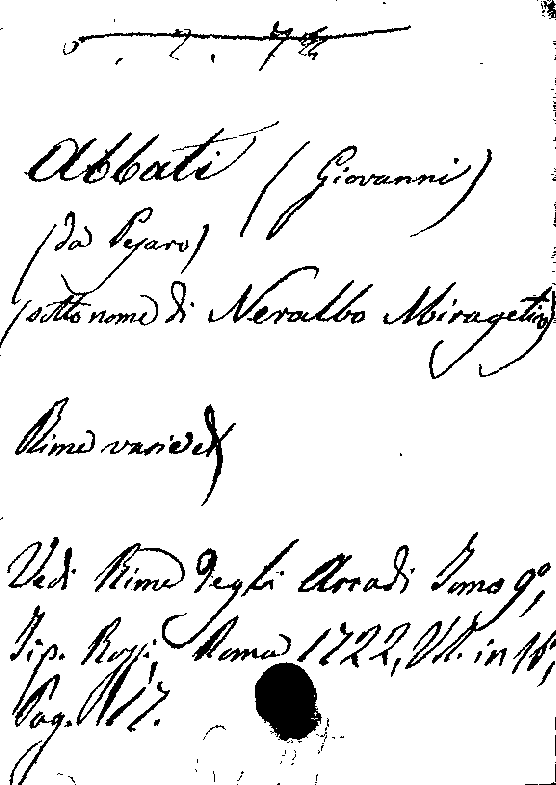 Abbati (Giovanni)
(da Pesaro)
(sotto nome di Neralbo Miragetico)
Rime varie
Vedi Rime degli Arcadi Tomo 9°,
Tip. Rossi, Roma 1722, in 16°,
Pag. 117.